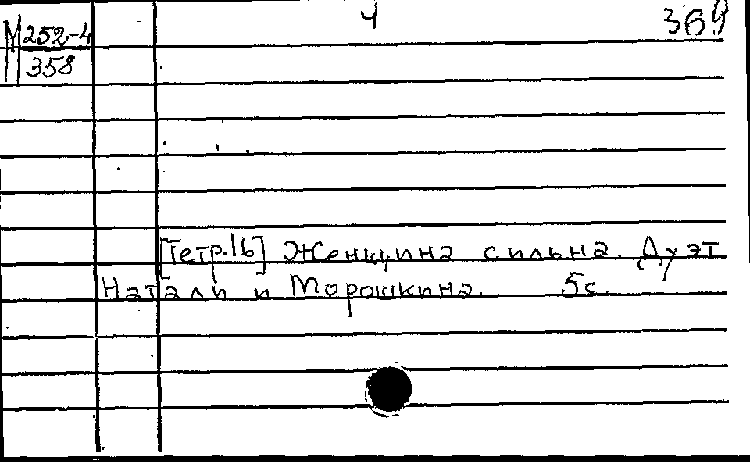 М 252-4
358
4
369
[Тетр.16] Женщина сильна. Дуэт
Натали и Морошкина. 5с.